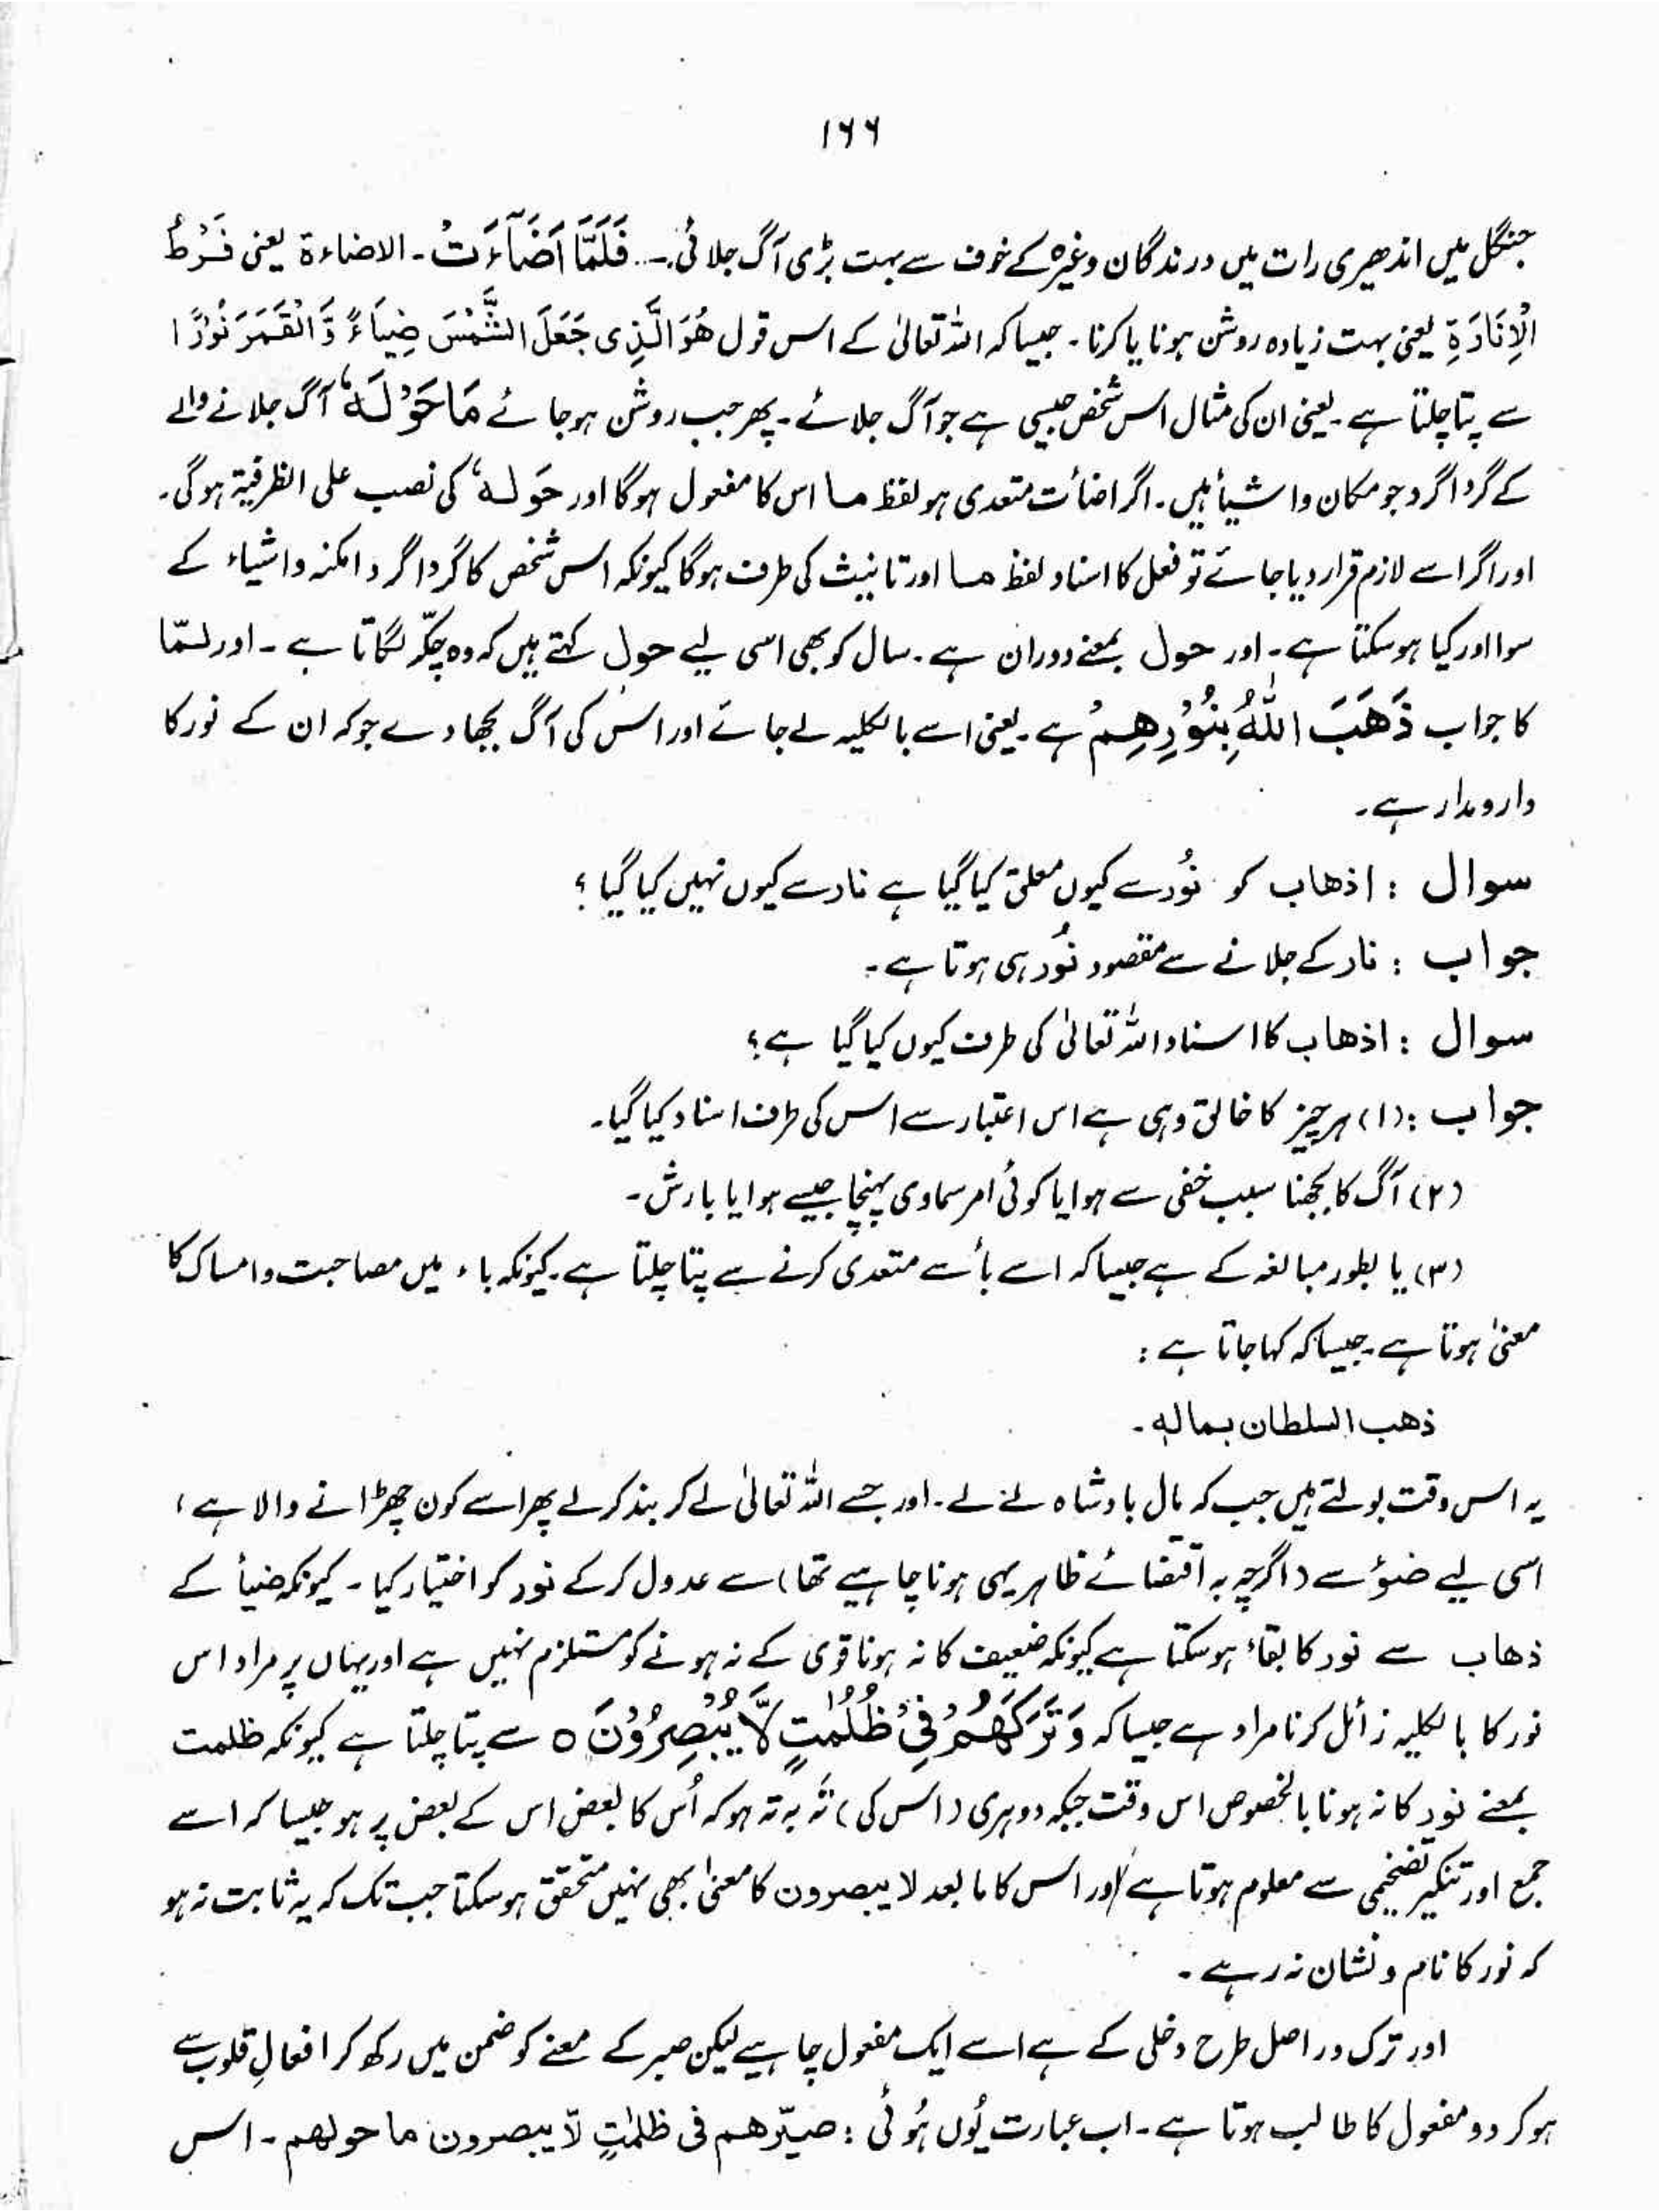 ۱۶۶
جنگل میں اندھیری رات میں درندگان وغیرہ کے خوف سے بہت بڑی آگ جلائی۔... فَلَمَّآ اَضَآءَتْ۔ الاضاءۃ یعنی فَرْطُ
الْاِنَارَۃِ یعنی بہت زیادہ روشن ہونا یا کرنا۔ جیسا کہ اللہ تعالیٰ کے اس قول هُوَ الَّذِی جَعَلَ الشَّمْسَ ضِیَآءً وَّالْقَمَرَ نُوْرًا
سے پتا چلتا ہے۔ یعنی ان کی مثال اس شخص جیسی ہے جو آگ جلائے۔ پھر جب روشن ہو جائے مَاحَوْلَهٗ آگ جلانے والے
کے گرداگرد جو مکان و اشیأ ہیں۔ اگر اضأت متعدی ہو لفظ ما اس کا مفعول ہوگا اور حَولهٗ کی نصب علی الظرفیۃ ہوگی۔
اور اگر اسے لازم قرار دیا جائے تو فعل کا اسناد لفظ ما اور تانیث کی طرف ہوگا کیونکہ اس شخص کا گرداگرد امکنہ و اشیاء کے
سوا اور کیا ہو سکتا ہے۔ اور حول بمعنے دوران ہے۔ سال کو بھی اسی لیے حول کہتے ہیں کہ وہ چکّر لگاتا ہے۔ اور لمّا
کا جواب ذَهَبَ اللّٰهُ بِنُوْرِهِمْ ہے۔ یعنی اسے بالکلیہ لے جائے اور اس کی آگ بجھا دے جو کہ ان کے نور کا
دارومدار ہے۔
سوال : اذهاب کو نُور سے کیوں معلق کیا گیا ہے نار سے کیوں نہیں کیا گیا ؟
جواب : نار کے جلانے سے مقصود نُور ہی ہوتا ہے۔
سوال : اذهاب کا اسناد اللہ تعالیٰ کی طرف کیوں کیا گیا ہے؟
جواب : (۱) ہر چیز کا خالق وہی ہے اس اعتبار سے اس کی طرف اسناد کیا گیا۔
(۲) آگ کا بجھنا سبب خفی سے ہوا یا کوئی امر سماوی پہنچا جیسے ہوا یا بارش۔
(۳) یا بطور مبالغہ کے ہے جیسا کہ اسے بأ سے متعدی کرنے سے پتا چلتا ہے۔ کیونکہ باء میں مصاحبت و امساک کا
معنیٰ ہوتا ہے۔ جیسا کہ کہا جاتا ہے :
ذهب السلطان بمالہٖ۔
یہ اس وقت بولتے ہیں جب کہ مال بادشاہ لے لے۔ اور جسے اللہ تعالیٰ لے کر بند کرلے پھر اسے کون چھڑانے والا ہے ،
اسی لیے ضوٗ سے (اگرچہ بہ اقتضائے ظاہر یہی ہونا چاہیے تھا) سے عدول کرکے نور کو اختیار کیا۔ کیونکہ ضیأ کے
ذهاب سے نور کا بقاء ہو سکتا ہے کیونکہ ضعیف کا نہ ہونا قوی کے نہ ہونے کو مستلزم نہیں ہے اور یہاں پر مراد اس
نور کا بالکلیہ زائل کرنا مراد ہے جیسا کہ وَتَرَکَهُمْ فِیْ ظُلُمٰتٍ لَّا یُبْصِرُوْنَ ۵ سے پتا چلتا ہے کیونکہ ظلمت
بمعنے نور کا نہ ہونا بالخصوص اس وقت جبکہ دوہری (اس کی) تہ بہ تہ ہو کہ اُس کا بعض اس کے بعض پر ہو جیسا کہ اسے
جمع اور تنکیر تفخیمی سے معلوم ہوتا ہے اور اس کا مابعد لا یبصرون کا معنیٰ بھی نہیں متحقق ہو سکتا جب تک کہ یہ ثابت نہ ہو
کہ نور کا نام و نشان نہ رہے۔
اور ترک دراصل طرح وخلی کے ہے اسے ایک مفعول چاہیے لیکن صیر کے معنے کو ضمن میں رکھ کر افعالِ قلوب سے
ہو کر دو مفعول کا طالب ہوتا ہے۔ اب عبارت یُوں ہُوئی : صیّرهم فی ظلمٰتٍ لّا یبصرون ما حولهم۔ اس